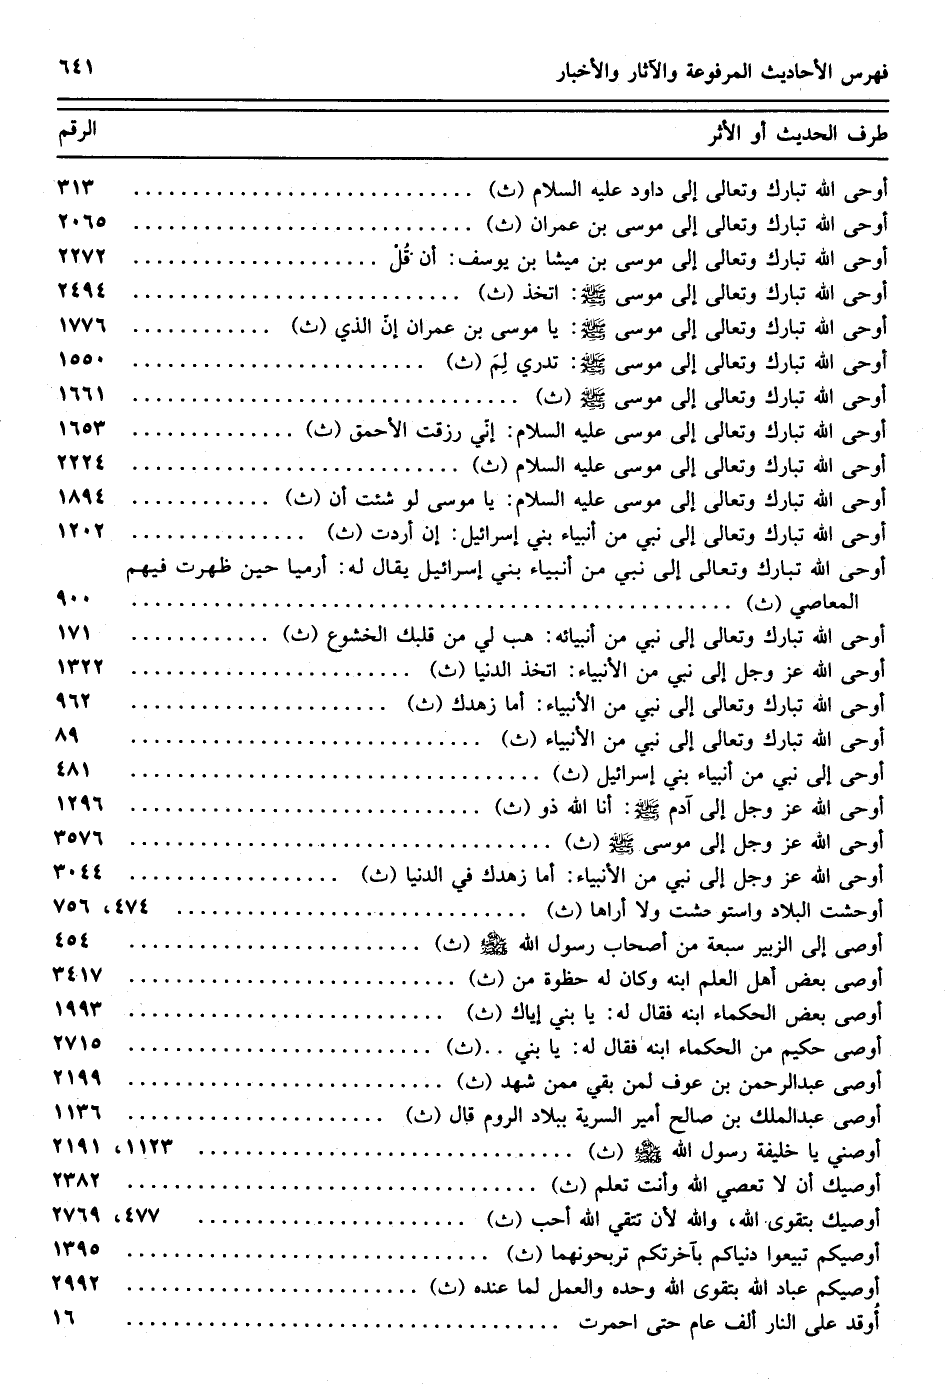 فهرس الأحاديث المرفوعة والآثار والأخبار ٦٤١
طرف الحديث أو الأثر الرقم
أوحى الله تبارك وتعالى إلى داود عليه السلام (ث) ............................. ٣١٣
أوحى الله تبارك وتعالى إلى موسى بن عمران (ث) ............................. ٢٠٦٥
أوحى الله تبارك وتعالى إلى موسى بن ميشا بن يوسف: أن قُلْ ..................... ٢٢٧٢
أوحى الله تبارك وتعالى إلى موسى ﷺ: اتخذ (ث) ............................ ٢٤٩٤
أوحى الله تبارك وتعالى إلى موسى ﷺ: يا موسى بن عمران إنّ الذي (ث) ............ ١٧٧٦
أوحى الله تبارك وتعالى إلى موسى ﷺ: تدري لِمَ (ث) ......................... ١٥٥٠
أوحى الله تبارك وتعالى إلى موسى ﷺ (ث) ................................. ١٦٦١
أوحى الله تبارك وتعالى إلى موسى عليه السلام: إنّي رزقت الأحمق (ث) .............. ١٦٥٣
أوحى الله تبارك وتعالى إلى موسى عليه السلام (ث) ............................ ٢٢٢٤
أوحى الله تبارك وتعالى إلى موسى عليه السلام: يا موسى لو شئت أن (ث) ............ ١٨٩٤
أوحى الله تبارك وتعالى إلى نبي من أنبياء بني إسرائيل: إن أردت (ث) ............... ١٢٠٢
أوحى الله تبارك وتعالى إلى نبي من أنبياء بني إسرائيل يقال له: أرميا حين ظهرت فيهم
المعاصي (ث) .................................................... ٩٠٠
أوحى الله تبارك وتعالى إلى نبي من أنبيائه: هب لي من قلبك الخشوع (ث) ............ ١٧١
أوحى الله عز وجل إلى نبي من الأنبياء: اتخذ الدنيا (ث) ........................ ١٣٢٢
أوحى الله تبارك وتعالى إلى نبي من الأنبياء: أما زهدك (ث) ...................... ٩٦٢
أوحى الله تبارك وتعالى إلى نبي من الأنبياء (ث) .............................. ٨٩
أوحى إلى نبي من أنبياء بني إسرائيل (ث) ................................... ٤٨١
أوحى الله عز وجل إلى آدم ﷺ: أنا الله ذو (ث) .............................. ١٢٩٦
أوحى الله عز وجل إلى موسى ﷺ (ث) .................................... ٣٥٧٦
أوحى الله عز وجل إلى نبي من الأنبياء: أما زهدك في الدنيا (ث) .................. ٣٠٤٤
أوحشت البلاد واستوحشت ولا أراها (ث) .............................. ٤٧٤، ٧٥٦
أوصى إلى الزبير سبعة من أصحاب رسول الله ﷺ (ث) ......................... ٤٥٤
أوصى بعض أهل العلم ابنه وكان له حظوة من (ث) ............................ ٣٤١٧
أوصى بعض الحكماء ابنه فقال له: يا بني إياك (ث) ........................... ١٩٩٣
أوصى حكيم من الحكماء ابنه فقال له: يا بني ..(ث) .......................... ٢٧١٥
أوصى عبدالرحمن بن عوف لمن بقي ممن شهد (ث) ........................... ٢١٩٩
أوصى عبدالملك بن صالح أمير السرية ببلاد الروم قال (ث) ...................... ١١٣٦
أوصني يا خليفة رسول الله ﷺ (ث) ................................ ١١٢٣، ٢١٩١
أوصيك أن لا تعصي الله وأنت تعلم (ث) ................................... ٢٣٨٢
أوصيك بتقوى الله، والله لأن تتقي الله أحب (ث) ....................... ٤٧٧، ٢٧٦٩
أوصيكم تبيعوا دنياكم بآخرتكم تربحونهما (ث) ............................... ١٣٩٥
أوصيكم عباد الله بتقوى الله وحده والعمل لما عنده (ث) ......................... ٢٩٩٢
أُوقد على النار ألف عام حتى احمرت ..................................... ١٦